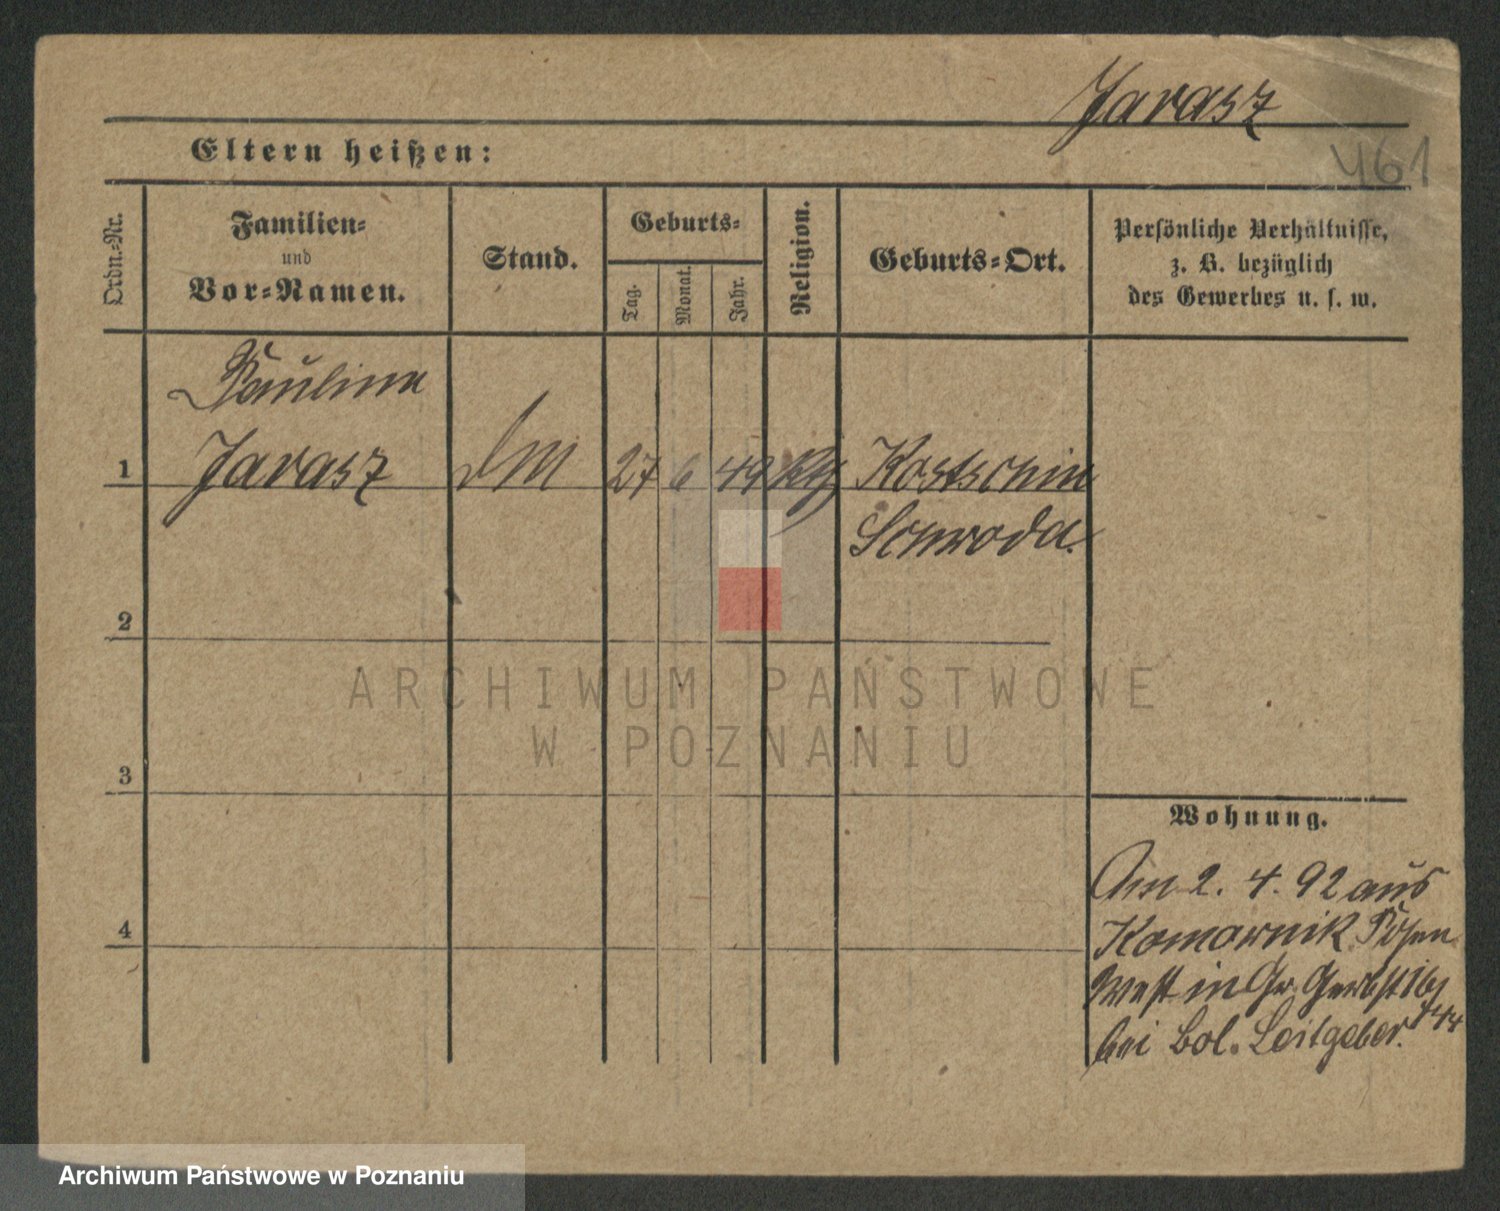 Jarasz
461
Eltern heißen:
Ordn.-Nr.
Familien-
und
Vor-Namen.
Stand.
Geburts-
Tag.
Monat.
Jahr.
Religion.
Geburts-Ort.
Persönliche Verhältnisse,
z. B. bezüglich
des Gewerbes u. s. w.
Paulina
1 Jarasz 27 6 49 Kth Kostschin
Schroda.
2
3
4
ARCHIWUM PAŃSTWOWE
W POZNANIU
Wohnung.
Am 2. 4. 92 aus
Komornik Posen
West in Gr. Gerbst
bei Bol. Leitgeber.
Archiwum Państwowe w Poznaniu